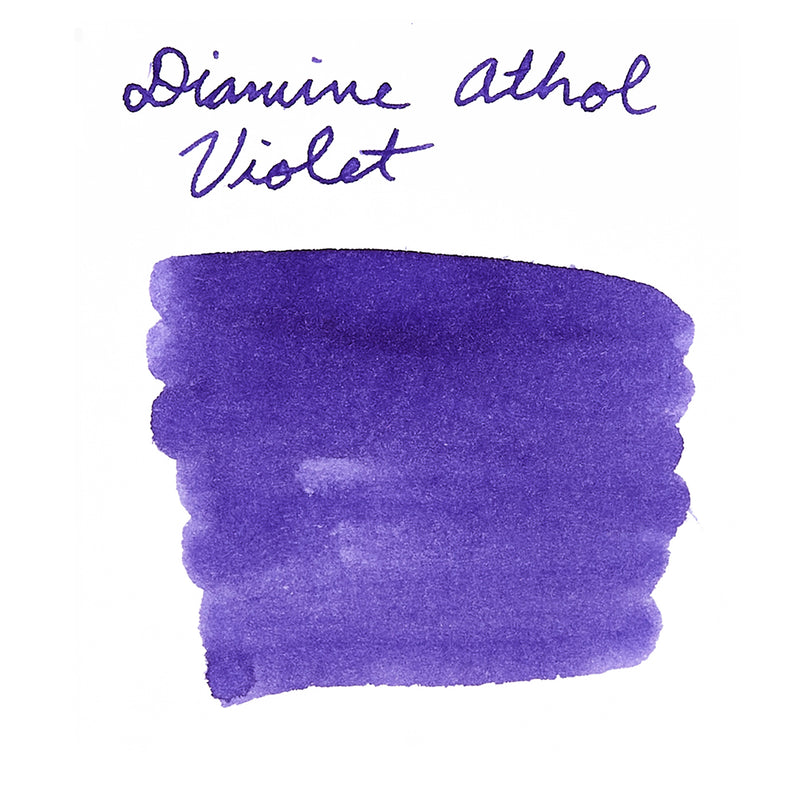 Diamine Athol
Violet